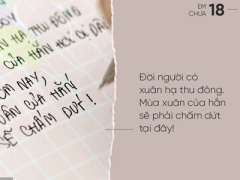 EM
CHƯA 18
Đời người có
xuân hạ thu đông.
Mùa xuân của hắn
sẽ phải chấm dứt
tại đây!
HẠ THU ĐÔNG
CỦA HẮN
NAY,
CỦA HẮN
CHẤM DỨT!